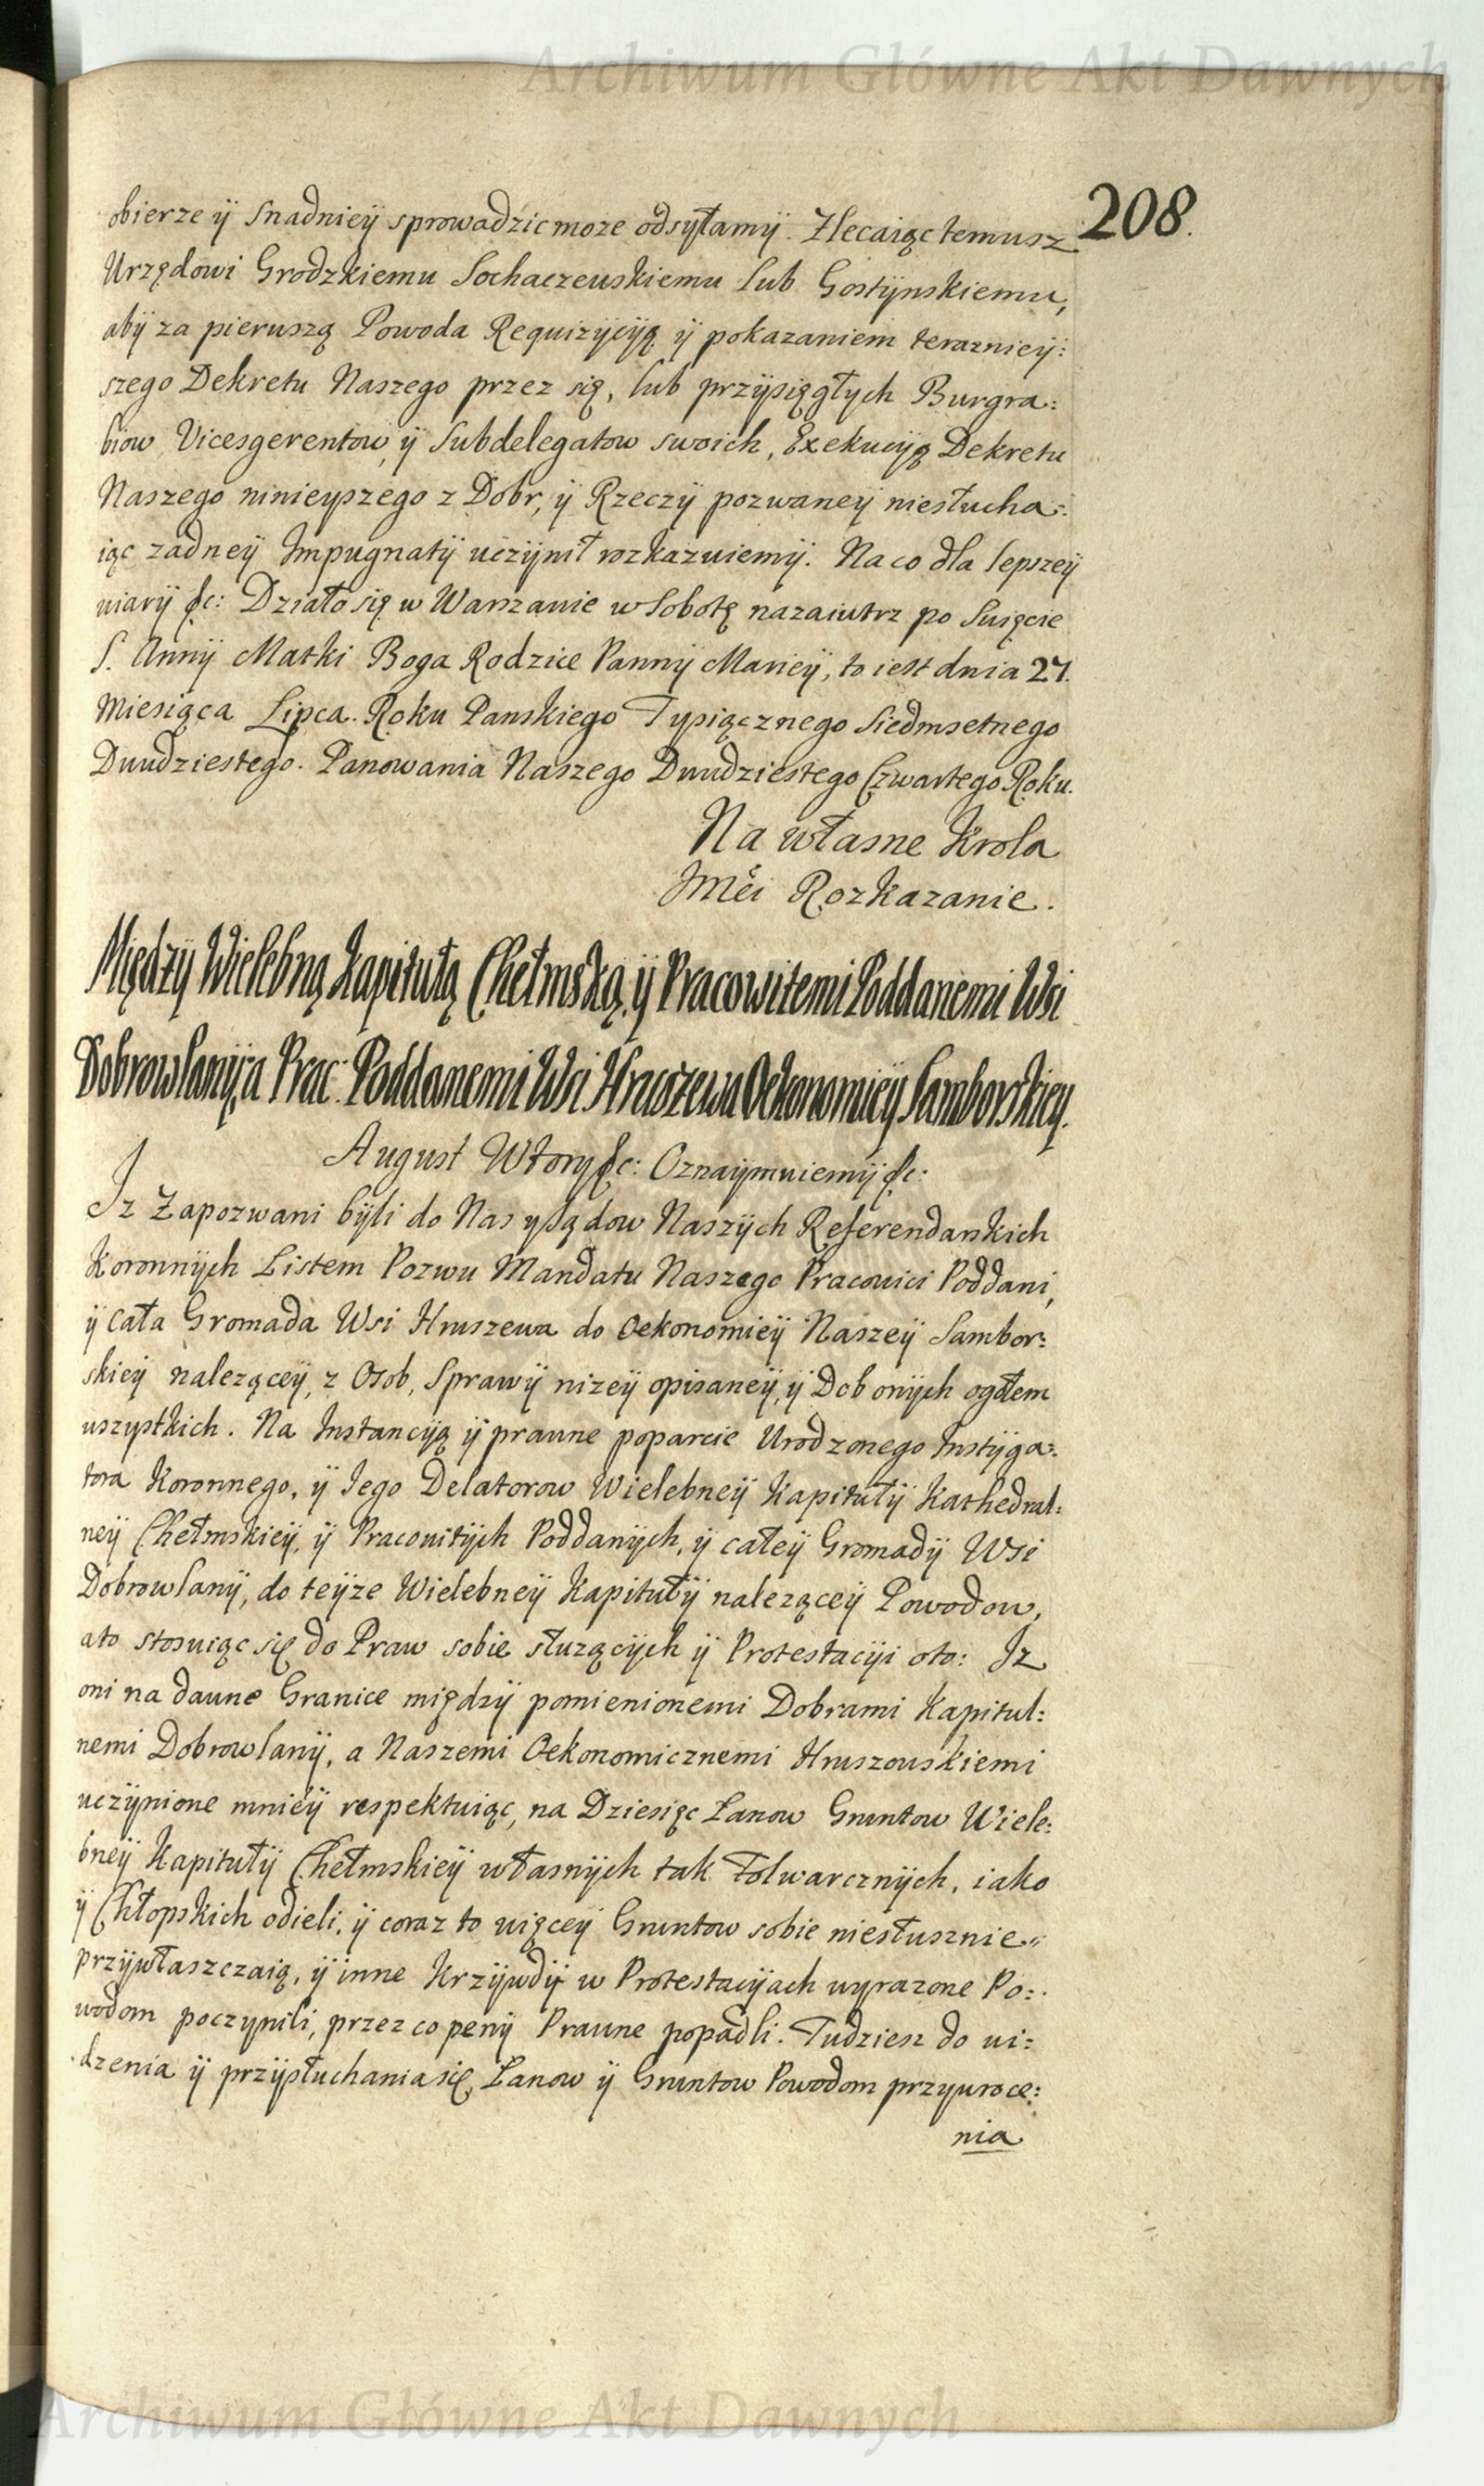 Archiwum Główne Akt Dawnych
208.
obierze ÿ snadnieÿ sprowadzic moze odsyłamÿ. Zlecaiąc temusz
Urzędowi Grodzkiemu Sochaczeuskiemu lub Gostÿnskiemu,
abÿ za pieruszą Powoda Requizÿcÿą ÿ pokazaniem terazniey:
szego Dekretu Naszego przez się, lub przÿsięgłych Burgra:
biow Vicesgerentow, ÿ Subdelegatow swoich, Exekucÿą Dekretu
Naszego ninieyszego z Dobr, ÿ Rzeczÿ pozwaneÿ niesłucha:
iąc zadneÿ Impugnatÿ uczÿnił rozkazuiemÿ. Na co dla lepszeÿ
wiarÿ &c: Działo się w Warszawie w Sobotę nazaiutrz po Swięcie
S. Annÿ Matki Boga Rodzice Pannÿ Marieÿ, to iest dnia 27.
Miesiąca Lipca. Roku Panskiego Tysiącznego Siedmsetnego
Dwudziestego. Panowania Naszego Dwudziestego Czwartego Roku.
Na własne Krola
Jmci Rozkazanie.
Międzÿ Wielebną Kapitułą Chełmską, ÿ Pracowitemi Poddanemi Wsi
Dobrowlanÿ, a Prac: Poddanemi Wsi Hruszewa Oekonomieÿ Samborskiey.
August Wtory &c: Oznaÿmuiemÿ &c:
Iz Zapozwani bÿli do Nas y Sądow Naszÿch Referendarskich
Koronnÿch Listem Pozwu Mandatu Naszego Pracowici Poddani,
ÿ Cała Gromada Wsi Hruszewa do Oekonomieÿ Naszeÿ Sambor:
skieÿ naleząceÿ, z Osob, Sprawÿ nizeÿ opisaneÿ, ÿ Dob onÿch ogołem
wszystkich. Na Instancÿą ÿ prawne poparcie Urodzonego Instÿga:
tora Koronnego, ÿ Jego Delatorow Wielebneÿ Kapitułÿ Kathedral:
neÿ Chełmskieÿ, ÿ Pracowitÿch Poddanÿch, ÿ całeÿ Gromadÿ Wsi
Dobrowlanÿ, do teÿze Wielebneÿ Kapitułÿ nalezącey Powodow,
ato stosuiąc się do Praw sobie słuzącÿch ÿ Protestacÿi oto: Iz
oni na dawne Granice międzÿ pomienionemi Dobrami Kapitul:
nemi Dobrowlanÿ, a Naszemi Oekonomicznemi Hruszouskiemi
uczÿnione mnieÿ respektuiąc, na Dziesięc Łanow Gruntow Wiele:
bneÿ Kapitułÿ Chełmskieÿ własnÿch tak Folwarcznÿch, iako
ÿ Chłopskich odieli, ÿ coraz to więceÿ Gruntow sobie niesłusznie
przÿwłaszczaią, ÿ inne Krzÿwdÿ w Protestacÿach wyrazone Po:
wodom poczynili, przez co penÿ Prawne popadli. Tudziesz do wi:
dzenia ÿ przÿsłuchania się, Łanow ÿ Gruntow Powodom przywroce:
nia
Archiwum Główne Akt Dawnych